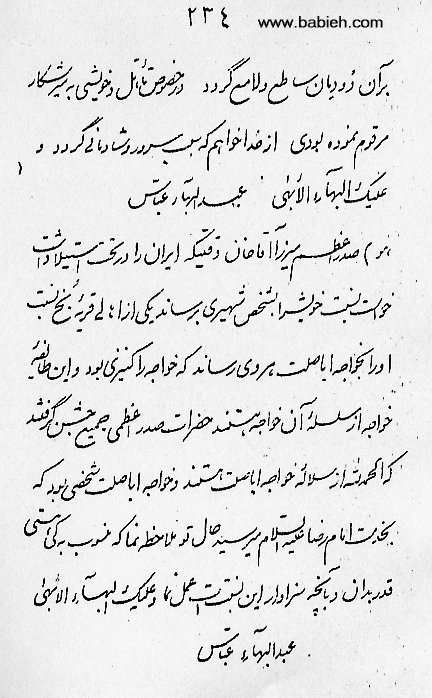 ۲۳٤
www.babieh.com
بر آن دودمان ساطع و لامع گردد در خصوص تأهّل و خویشی به پیشکار
مرقوم نموده بودی از خدا خواهم که سبب سرور و شادمانی گردد و
علیک البهآء الأبهی عبدالبهآء عبّاس
هو ) صدر اعظم میرزا آقاخان وقتیکه ایران را در تحت استیلا داشت
خواست نسبت خویش را بشخص شهیری برساند یکی از اهالی قریهٔ نسبت
او را بخواجه اباصلت هروی رساند که خواجه را کنیزی بود و این طائفهٔ
خواجه از سلسلهٔ آن خواجه هستند حضرات صدر اعظمی جمیع جشن گرفتند
که الحمدلله از سلالهٔ خواجه اباصلت هستند و خواجه اباصلت شخصی بود که
بخدمت امام رضا علیه السلام میرسید حال تو ملاحظه نما که منسوب به کی هستی
قدر بدان و بآنچه سزاوار این نسبت است عمل نما و علیک البهآء الأبهی
عبدالبهآء عبّاس